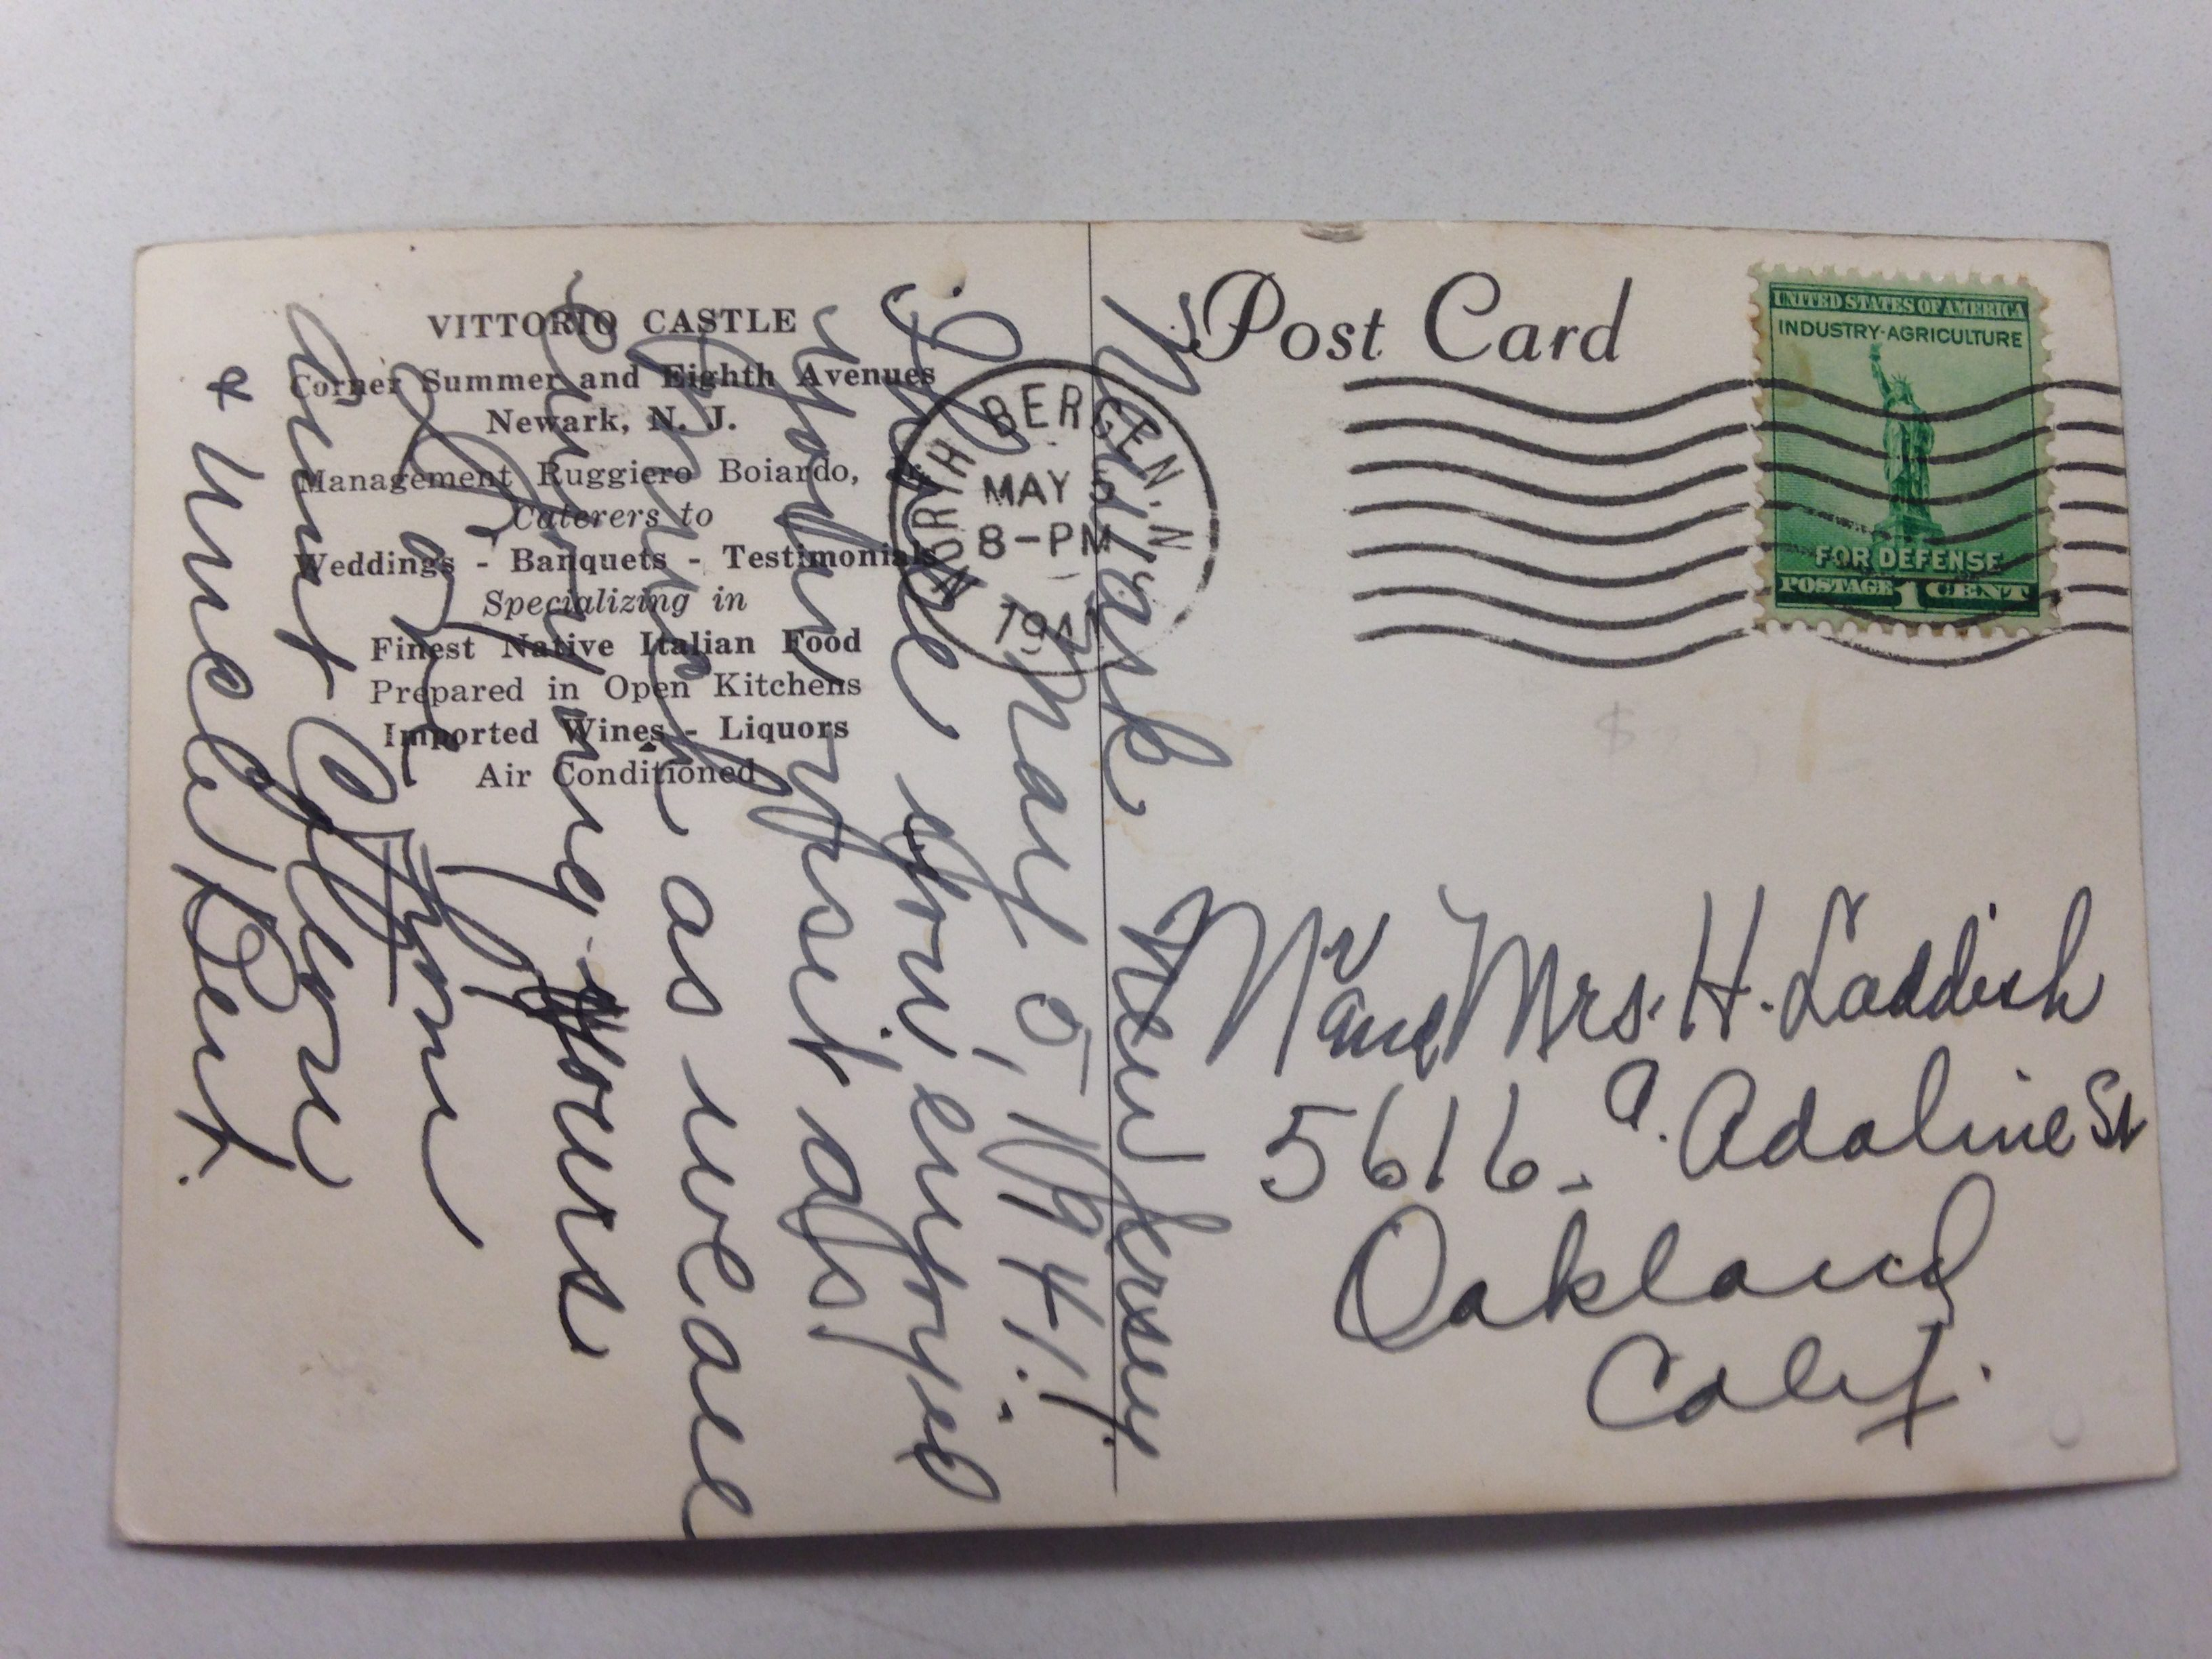 VITTORIO CASTLE
Corner Summer and Eighth Avenues
Newark, N. J.
Management Ruggiero Boiardo, Jr.
Caterers to
Weddings - Banquets - Testimonials
Specializing in
Finest Native Italian Food
Prepared in Open Kitchens
Imported Wines - Liquors
Air Conditioned
Post Card
NORTH BERGEN, N
MAY 5
8-PM
1941
UNITED STATES OF AMERICA
INDUSTRY-AGRICULTURE
FOR DEFENSE
POSTAGE 1 CENT
Newark New Jersey.
May 5, 1941.
you, enjoyed
visit as
much as we are
enjoying yours
From
Aunt
& Uncle Bert.
Mr and Mrs. H. Laddish
5616- a. Adaline St
Oakland
Calif.